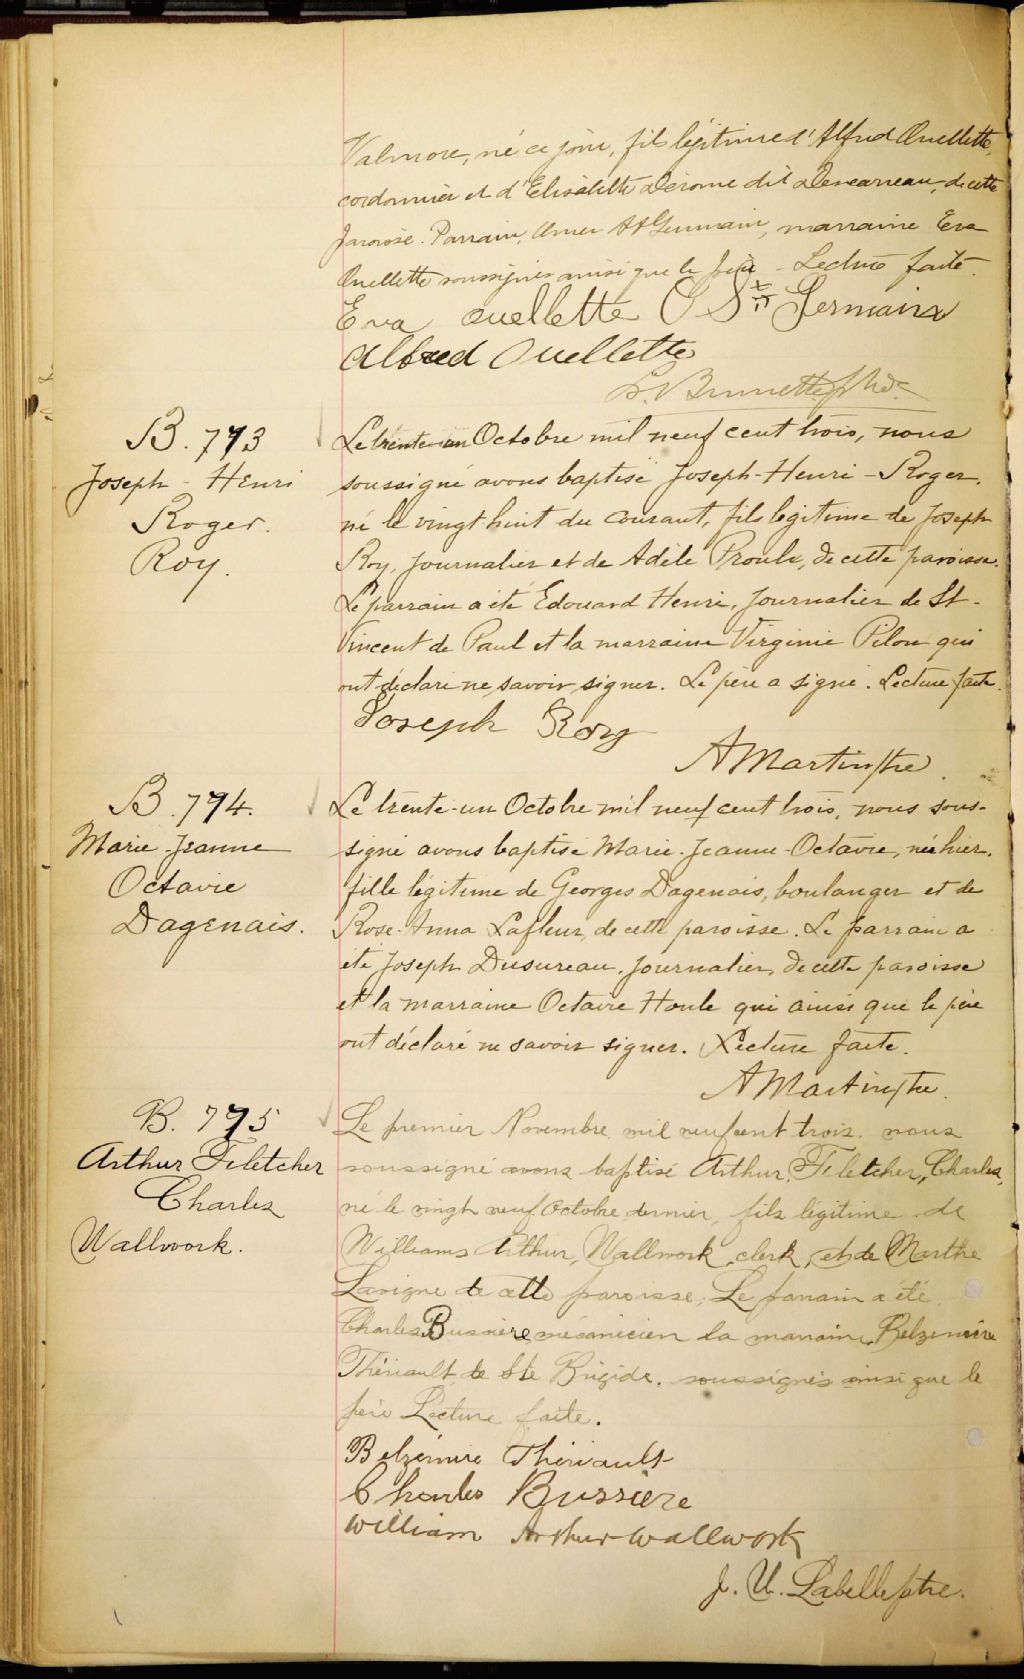 Valmore, né ce jour, fils légitime d'Alfred Ouellette,
cordonnier et d'Elisabette Derome dit Descarreau, de cette
paroisse. Parrain, Omer St Germain, marraine Eva
Ouellette soussignés ainsi que le père - Lecture faite.
Eva ouellette O St Germain
Alfred Ouellette
Brunette ptre
B. 773
Joseph - Henri
Roger.
Roy.
Le trente-un Octobre mil neuf cent trois, nous
soussigné avons baptisé Joseph-Henri-Roger,
né le vingt huit du courant, fils légitime de Joseph
Roy, journalier et de Adèle Proulx, de cette paroisse.
Le parrain a été Edouard Henri, journalier de St-
Vincent de Paul et la marraine Virginie Pilon qui
ont déclaré ne savoir signer. Le père a signé. Lecture faite.
Joseph Roy
A Martin ptre
B. 774.
Marie-Jeanne
Octavie
Dagenais.
Le trente-un Octobre mil neuf cent trois, nous sous-
signé avons baptisé Marie-Jeanne-Octavie, née hier,
fille légitime de Georges Dagenais, boulanger et de
Rose-Anna Lafleur, de cette paroisse. Le parrain a
été Joseph Dusureau, journalier, de cette paroisse
et la marraine Octavie Houle qui ainsi que le père
ont déclaré ne savoir signer. Lecture faite.
A Martin ptre
B. 775
Arthur Feletcher
Charles
Wallwork.
Le premier Novembre mil neuf cent trois nous
soussigné avons baptisé Arthur, Feletcher, Charles,
né le vingt neuf Octobre dernier, fils légitime de
Williams Arthur, Wallwork, clerk, et de Marthe
Lavigne de cette paroisse, Le parrain a été
Charles Bussière mécanicien la marraine Belzemire
Thériault, de Ste Brigide, soussignés ainsi que le
père Lecture faite.
Belzémire Thériault
Charles Bussière
William Arthur Wallwork
J. U. Labelle ptre.